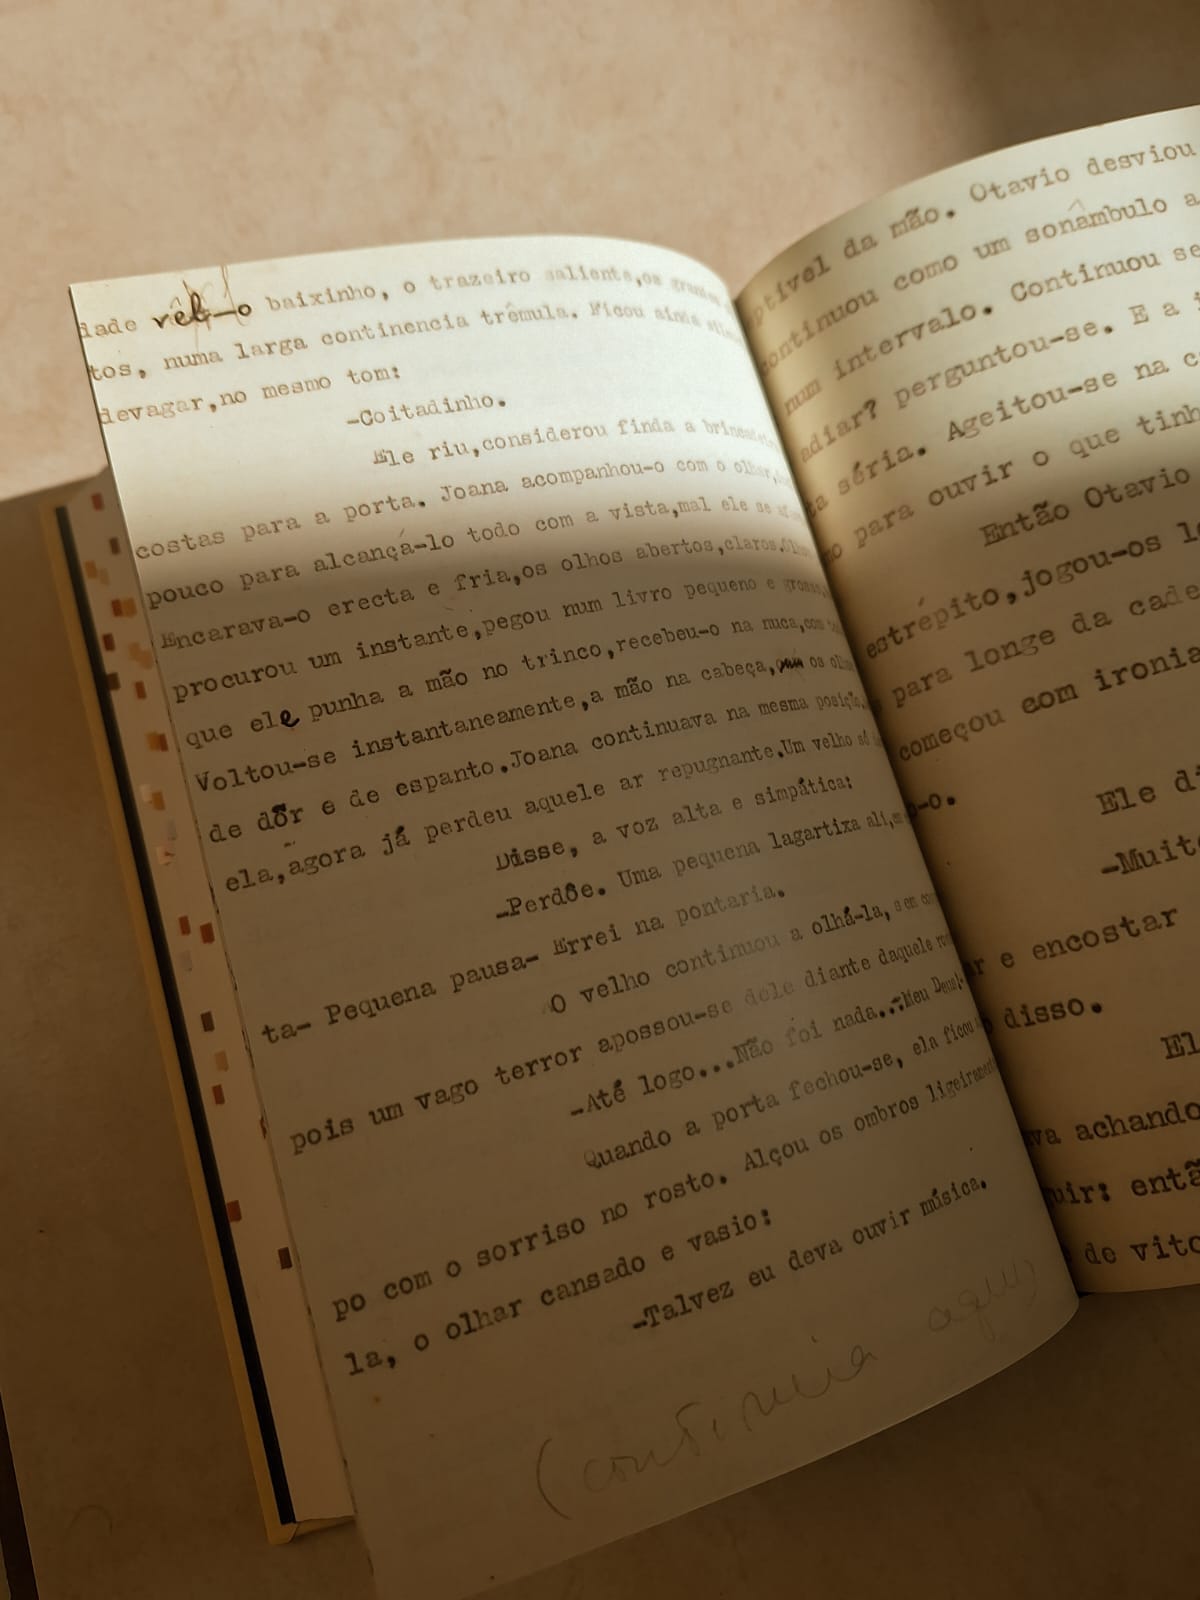 iade vêl-o baixinho, o trazeiro saliente,os grandes
tos, numa larga continencia trêmula. Ficou ainda
devagar,no mesmo tom:
-Coitadinho.
Ele riu,considerou finda a
costas para a porta. Joana acompanhou-o com o olhar,
pouco para alcançá-lo todo com a vista,mal ele se
Encarava-o erecta e fria,os olhos abertos,claros.
procurou um instante,pegou num livro pequeno e
que ele punha a mão no trinco,recebeu-o na nuca,com
Voltou-se instantaneamente,a mão na cabeça, os
de dôr e de espanto.Joana continuava na mesma posição.
ela,agora já perdeu aquele ar repugnante.Um velho só
Disse, a voz alta e simpática:
-Perdôe. Uma pequena lagartixa ali,
ta- Pequena pausa- Errei na pontaria.
O velho continuou a olhá-la, sem
pois um vago terror apossou-se dele diante daquele
-Até logo...Não foi nada...-Meu Deus!-
Quando a porta fechou-se, ela ficou
po com o sorriso no rosto. Alçou os ombros
la, o olhar cansado e vasio:
-Talvez eu deva ouvir música.
(continúa aqui)
ptivel da mão. Otavio desviou
continuou como um sonâmbulo a
num intervalo. Continuou se
adiar? perguntou-se. E a
ta séria. Ageitou-se na c
no para ouvir o que tinh
Então Otavio
estrépito,jogou-os l
para longe da cade
começou com ironia
o-o.
Ele d
-Muit
ar e encostar
disso.
El
va achando
uir: entã
de vito